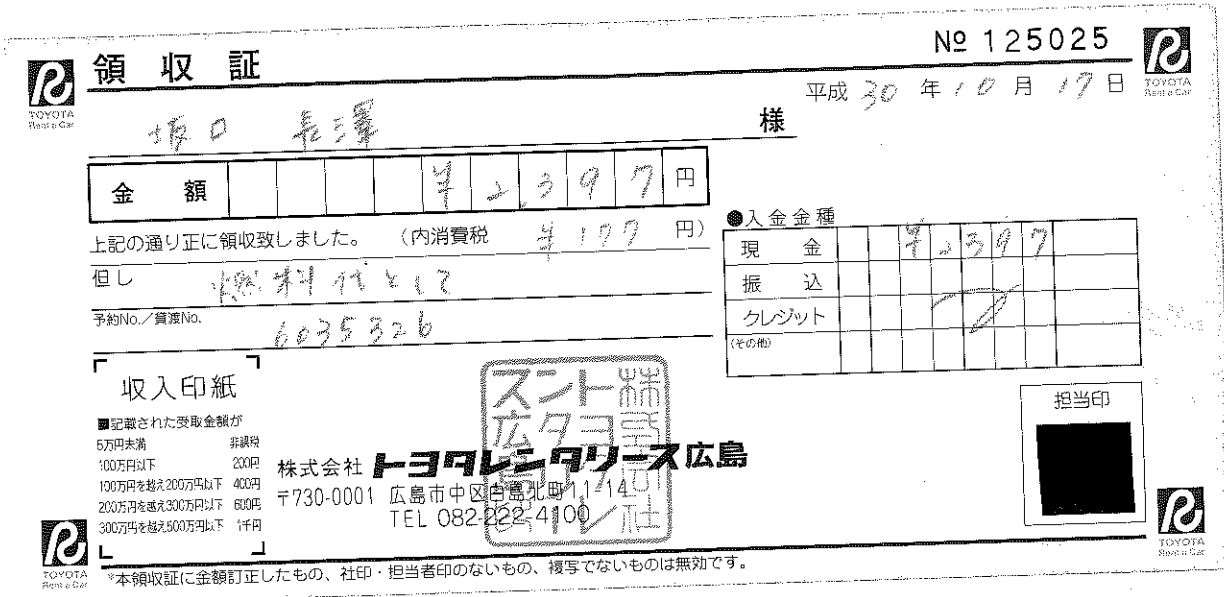 領収証
№ 125025
TOYOTA
Rent a Car
TOYOTA
Rent a Car
平成 30 年 10 月 17 日
坂口 長澤 様
金額 ¥2,397 円
上記の通り正に領収致しました。 (内消費税 ¥177 円)
但し 燃料代として
予約No.／貸渡No. 6035326
●入金金種
現金 ¥2,397
振込
クレジット
(その他)
収入印紙
■記載された受取金額が
5万円未満 非課税
100万円以下 200円
100万円を越え200万円以下 400円
200万円を越え300万円以下 600円
300万円を越え500万円以下 1千円
株式会社 トヨタレンタリース広島
〒730-0001 広島市中区白島北町11-14
TEL 082-222-4100
株式会社トヨタレンタリース広島
担当印
TOYOTA
Rent a Car
TOYOTA
Rent a Car
*本領収証に金額訂正したもの、社印・担当者印のないもの、複写でないものは無効です。